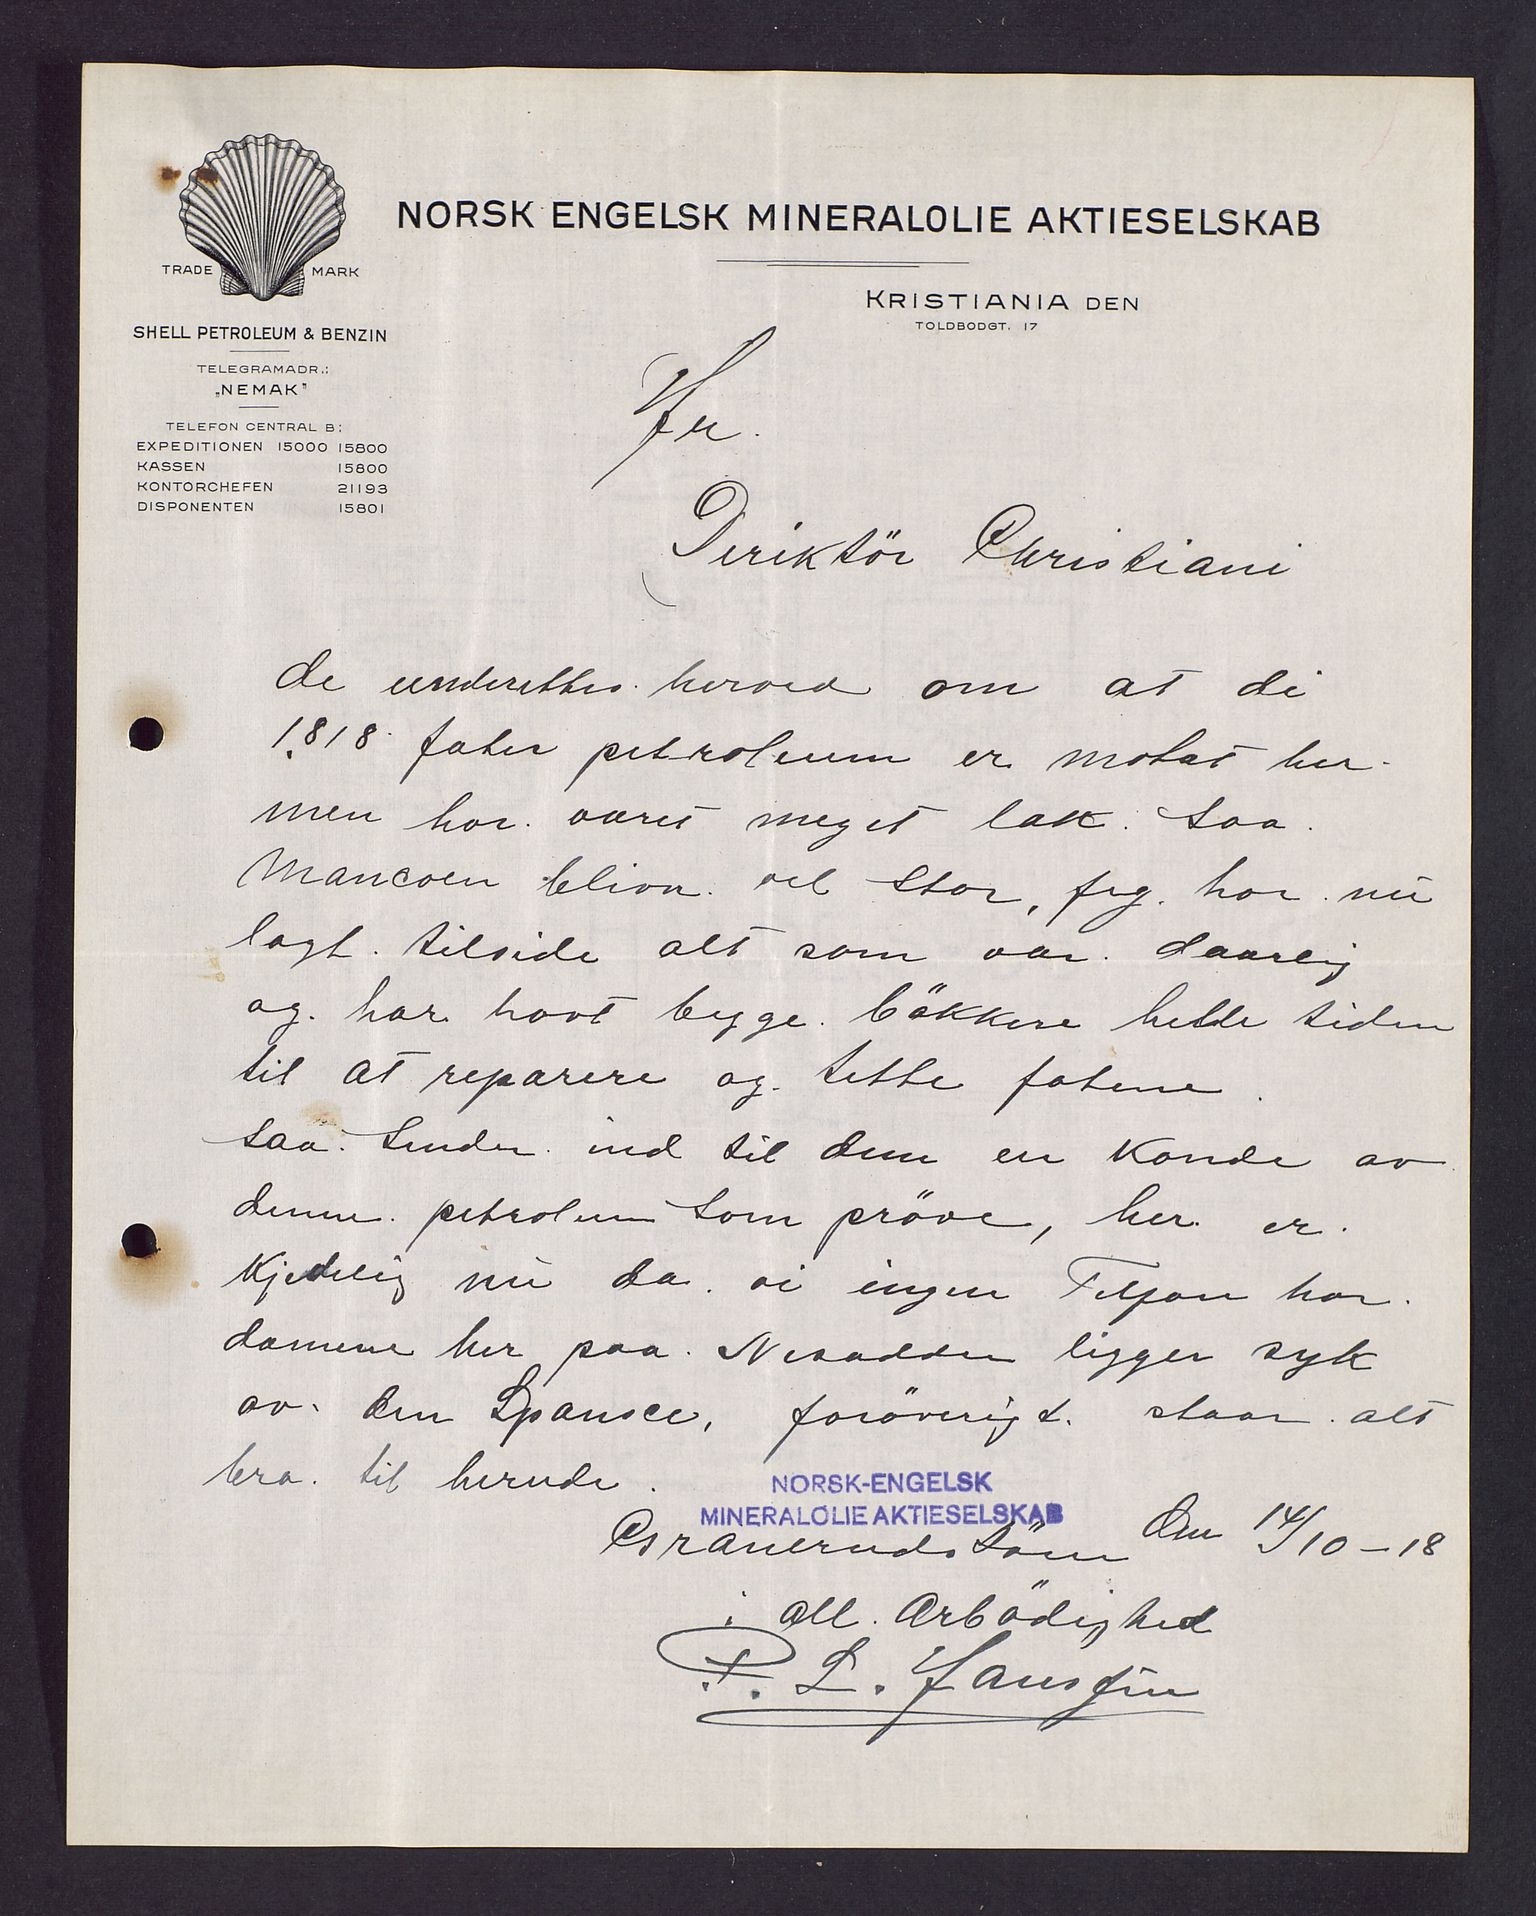 NORSK ENGELSK MINERALOLIE AKTIESELSKAB
TRADE MARK
KRISTIANIA DEN
TOLDBODGT. 17
SHELL PETROLEUM & BENZIN
TELEGRAMADR.:
„NEMAK"
TELEFON CENTRAL B:
EXPEDITIONEN 15000 15800
KASSEN 15800
KONTORCHEFEN 21193
DISPONENTEN 15801
Hr.
Diriktör Christiani
de underettes herved om at di
1818 fater petroleum er motat her
men har været meget lak. saa
Mancoen bliver vel stor, jeg har nu
lagt tilside alt som var daarlig
og har havt begge bökkere hette tiden
til at reparere og tette fatene.
saa sender ind til dem en Kande av
denne petroleum som pröve, her er
Kjedelig nu da vi ingen Telfon har
damene her paa Nesodden ligger syk
av den Spansce, foröverigt staar alt
bra til herude.
NORSK-ENGELSK
MINERALOLIE AKTIESELSKAB
Granerudstöen den 14/10-18
i all Arbödighed
P. L. Hansen